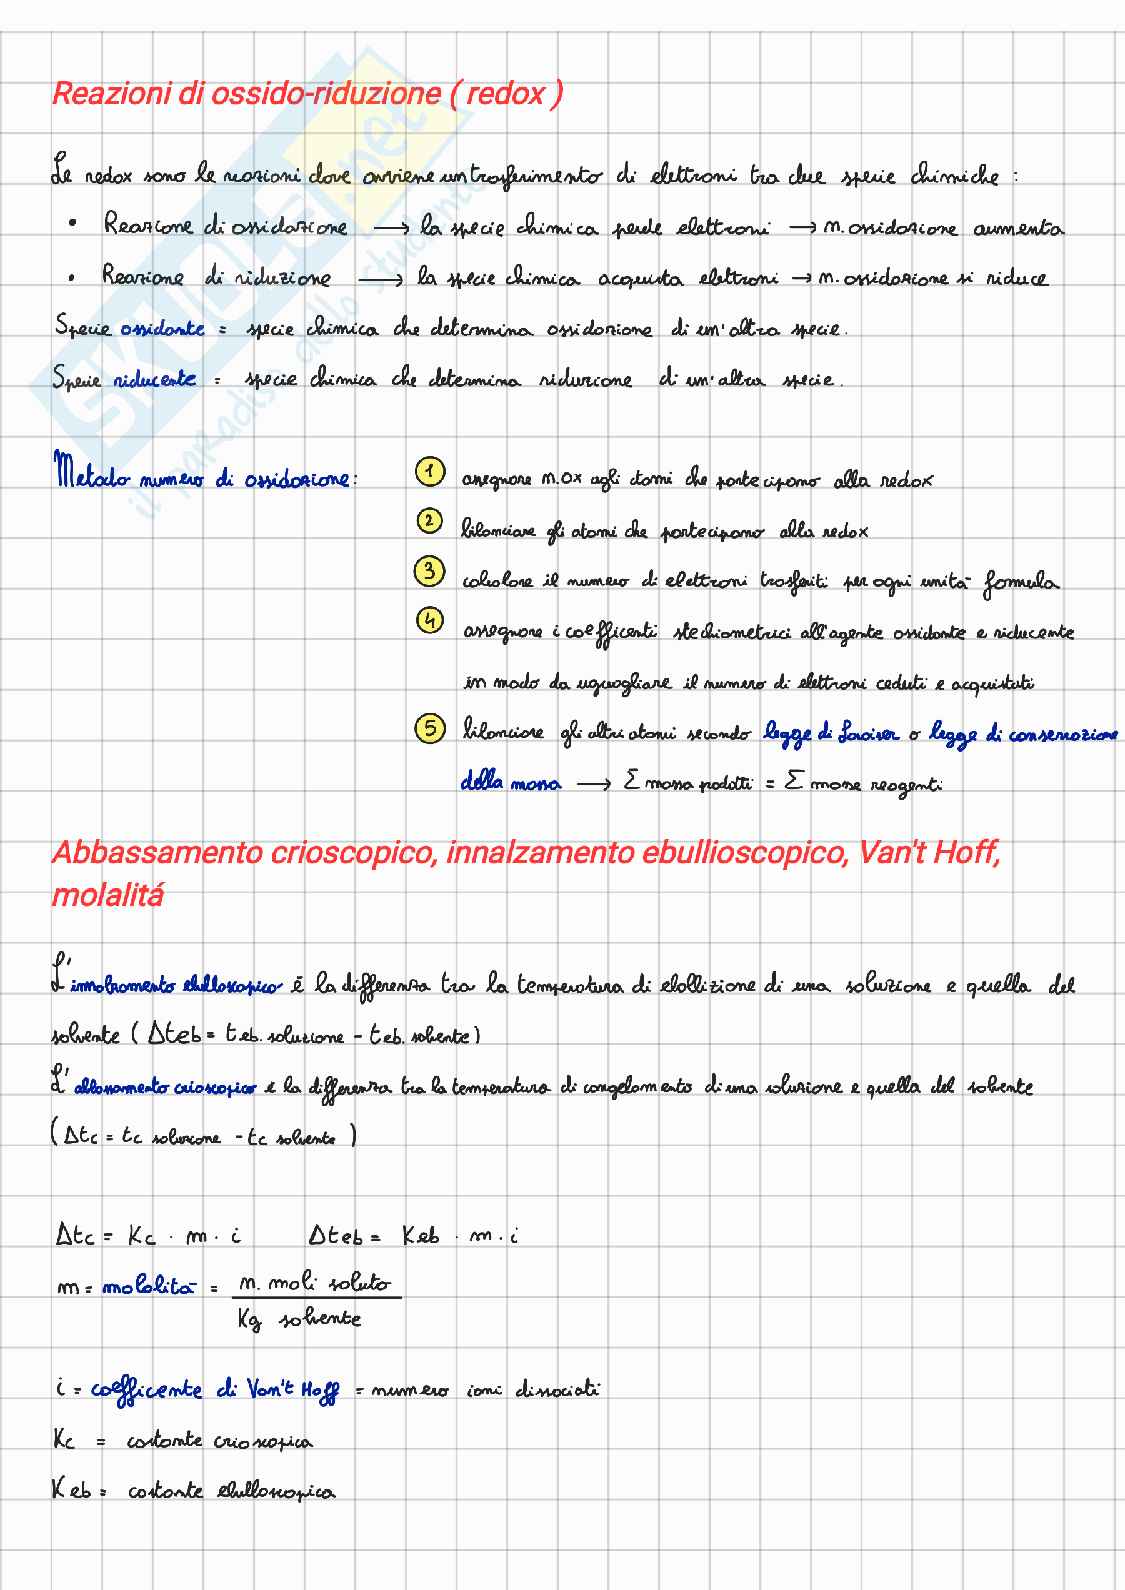 Reazioni di ossido-riduzione ( redox )
Le redox sono le reazioni dove avviene un trasferimento di elettroni tra due specie chimiche :
• Reazione di ossidazione → la specie chimica perde elettroni → n. ossidazione aumenta
• Reazione di riduzione → la specie chimica acquista elettroni → n. ossidazione si riduce
Specie ossidante = specie chimica che determina ossidazione di un'altra specie.
Specie riducente = specie chimica che determina riduzione di un'altra specie.
Metodo numero di ossidazione: 1 assegnare n.ox agli atomi che partecipano alla redox
2 bilanciare gli atomi che partecipano alla redox
3 calcolare il numero di elettroni trasferiti per ogni unità formula
4 assegnare i coefficenti stechiometrici all'agente ossidante e riducente
in modo da uguagliare il numero di elettroni ceduti e acquistati
5 bilanciare gli altri atomi secondo legge di Lavoiser o legge di conservazione
della massa → Σ massa podotti = Σ masse reagenti
Abbassamento crioscopico, innalzamento ebullioscopico, Van't Hoff,
molalitá
L'innalzamento ebulloscopico è la differenza tra la temperatura di ebollizione di una soluzione e quella del
solvente ( Δteb = teb. soluzione - teb. solvente )
L'abbassamento crioscopico e la differenza tra la temperatura di congelamento di una soluzione e quella del solvente
( Δtc = tc soluzione - tc solvente )
Δtc = Kc · m · i Δteb = Keb · m · i
m = molalità = n. moli soluto
Kg solvente
i = coefficente di Van't Hoff = numero ioni dissociati
Kc = costante crioscopica
Keb = costante ebulloscopica
SKUOLA.net
il paradiso dello studente